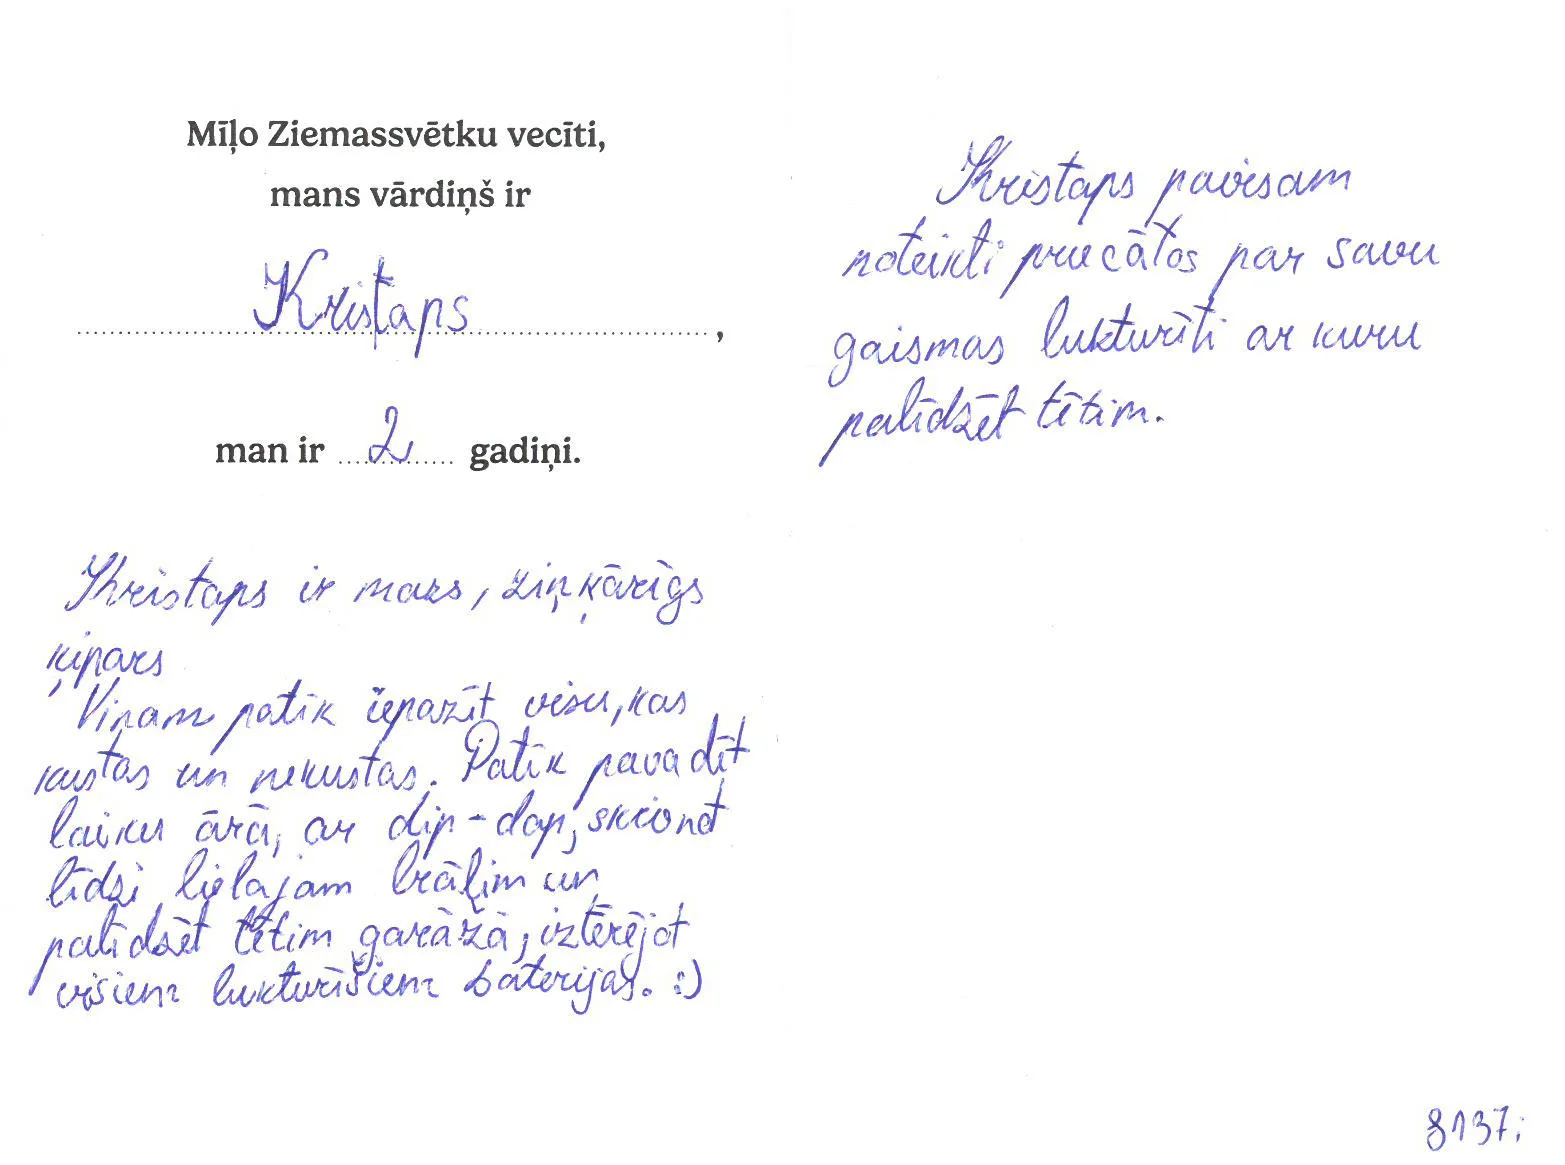 Mīļo Ziemassvētku vecīti,
mans vārdiņš ir
Kristaps,
man ir 2 gadiņi.
Kristaps ir mazs, ziņķārīgs
ķipars
Viņam patīk iepazīt visu, kas
kustas un nekustas. Patīk pavadīt
laiku ārā, ar dip-dap, skriond
līdzi lielajam brālim un
palīdzēt tētim garāžā, iztērējot
visiem lukturīšiem baterijas. :)
Kristaps pavisam
noteikti priecātos par savu
gaismas lukturīti ar kuru
palīdzēt tētim.
8137;